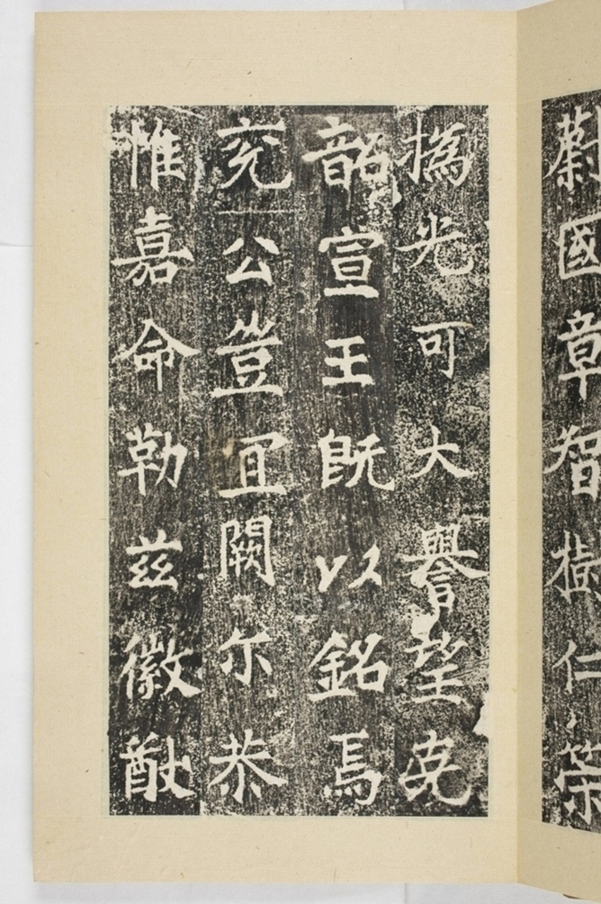 蔚國章智樹仁
撝光可大譽望克
韶宣王既以銘焉
兖公豈宜闕尔恭
惟嘉命勒茲徽猷